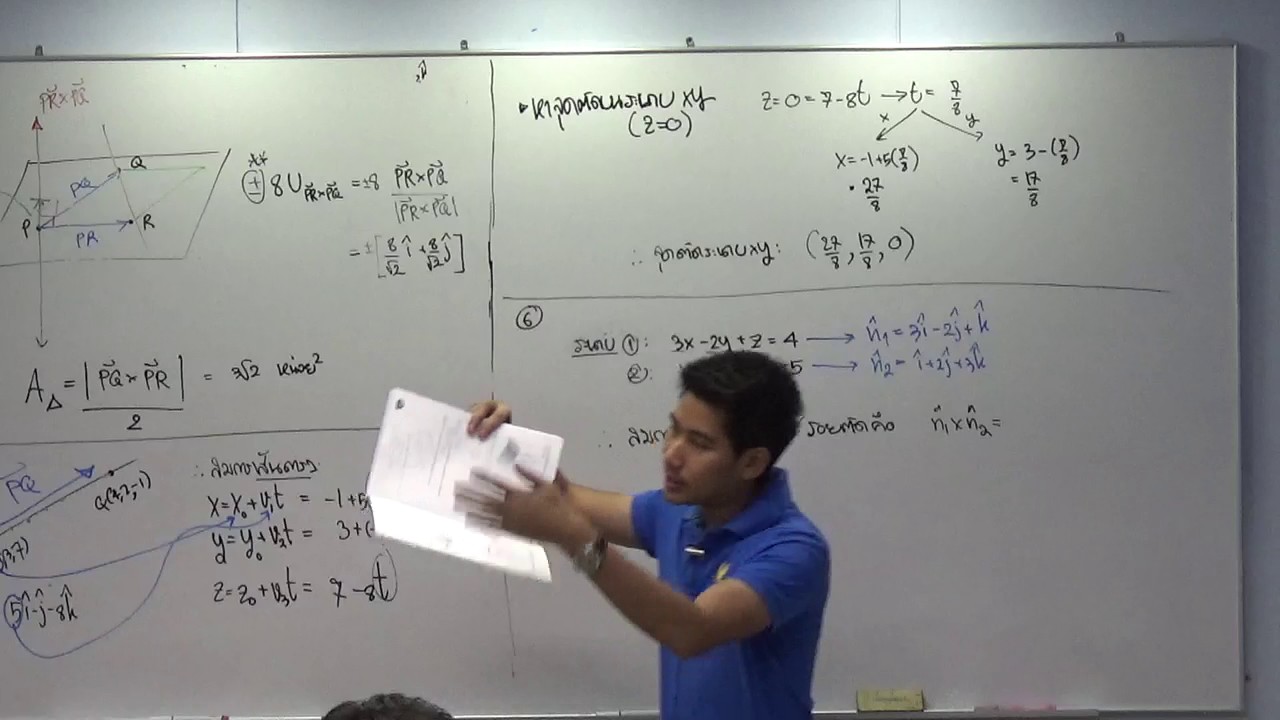 PR×PQ
Q
PQ
P
PR
R
**
± 8 U PR×PQ = ±8 PR×PQ / |PR×PQ|
= ± [ 8/√2 î + 8/√2 ĵ ]
A△ = |PQ × PR| / 2 = 3√2 หน่วย²
PQ
Q(4,2,-1)
3,7)
5î-ĵ-8k̂
∴ สมการเส้นตรง
x = x₀ + v₁t = -1+5
y = y₀ + v₂t = 3+(-
z = z₀ + v₃t = 7-8t
• หาจุดตัดบนระนาบ xy
(z=0)
z=0=7-8t → t = 7/8
x
y
x = -1+5(7/8)
= 27/8
y = 3-(7/8)
= 17/8
∴ จุดตัดระนาบ xy: (27/8, 17/8, 0)
⑥
ระนาบ ①: 3x-2y+z=4 → n̂₁ = 3î-2ĵ+k̂
②: 5 → n̂₂ = î+2ĵ+3k̂
∴ สมกา รอยตัดคือ n̂₁×n̂₂ =